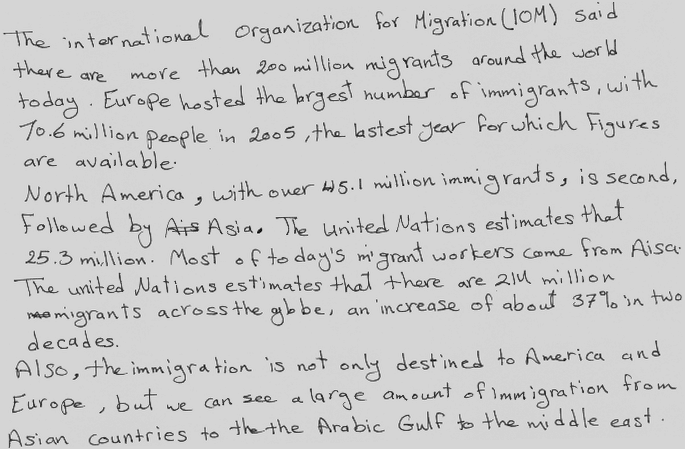 The international Organization for Migration (IOM) said
there are more than 200 million migrants around the world
today. Europe hosted the largest number of immigrants, with
70.6 million people in 2005, the lastest year for which Figures
are available.
North America, with over 45.1 million immigrants, is second,
Followed by Ais Asia. The United Nations estimates that
25.3 million. Most of today's migrant workers come from Aisa.
The united Nations estimates that there are 214 million
migrants across the globe, an increase of about 37% in two
decades.
Also, the immigration is not only destined to America and
Europe, but we can see a large amount of Immigration from
Asian countries to the the Arabic Gulf to the middle east.